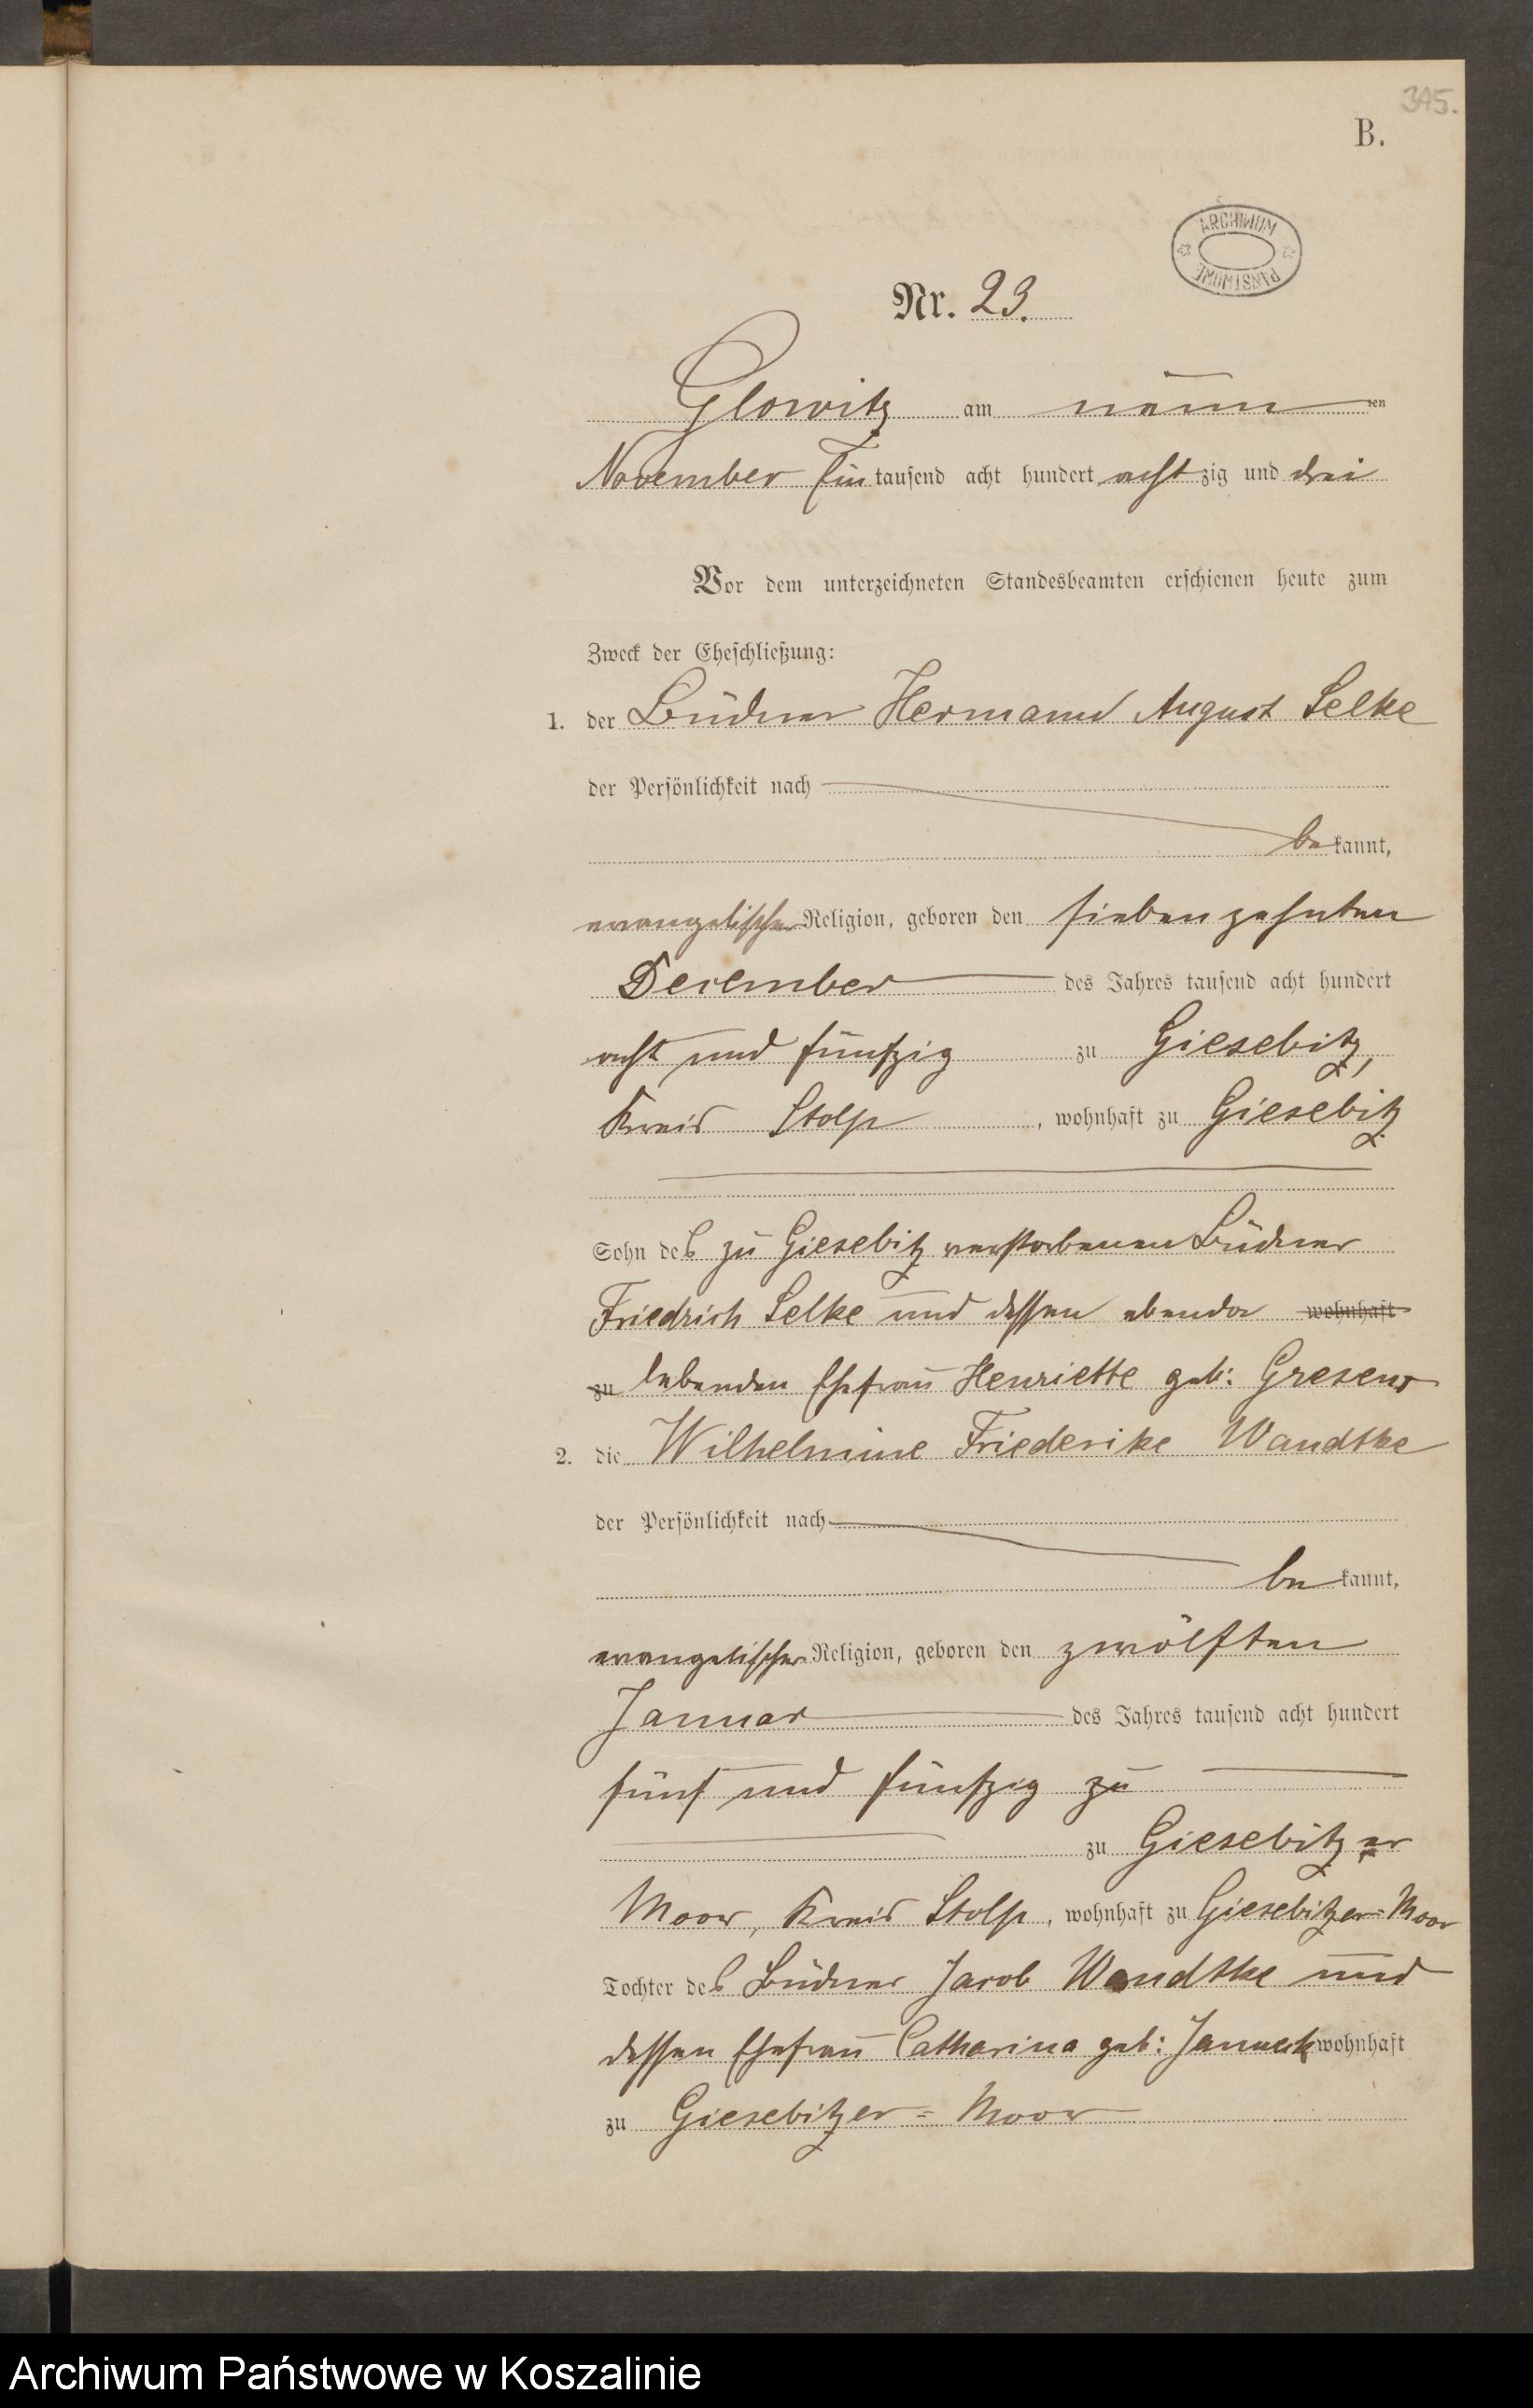 345.
B.
ARCHIWUM
PAŃSTWOWE
Nr. 23.
Glowitz am neun ten
November Ein tausend acht hundert acht zig und drei
Vor dem unterzeichneten Standesbeamten erschienen heute zum
Zweck der Eheschließung:
1. der Büdner Hermann August Selke
der Persönlichkeit nach
be kannt,
evangelischer Religion, geboren den siebenzehnten
December des Jahres tausend acht hundert
acht und fünfzig zu Giesebitz,
Kreis Stolp, wohnhaft zu Giesebitz
Sohn des zu Giesebitz verstorbenen Büdner
Friedrich Selke und dessen ebenda wohnhaft
zu lebenden Ehefrau Henriette geb: Gresens
2. die Wilhelmine Friederike Wandtke
der Persönlichkeit nach
be kannt,
evangelischer Religion, geboren den zwölften
Januar des Jahres tausend acht hundert
fünf und fünfzig zu
zu Giesebitzer
Moor, Kreis Stolp, wohnhaft zu Giesebitzer-Moor
Tochter des Büdner Jacob Wandtke und
dessen Ehefrau Catharina geb: wohnhaft
zu Giesebitzer-Moor
Archiwum Państwowe w Koszalinie